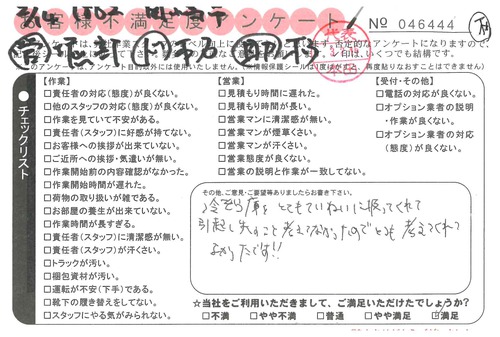 お客様不満足度アンケート
No 046444
のアンケートは、アンケート目的以外には使用いたしません。
チェックリスト
【作業】
□責任者の対応(態度)が良くない。
□他のスタッフの対応(態度)が良くない。
□作業を見ていて不安がある。
□責任者(スタッフ)に好感が持てない。
□お客様への挨拶が出来ていない。
□ご近所への挨拶・気遣いが無い。
□作業開始前の内容確認がなかった。
□作業開始時間が遅れた。
□荷物の取り扱いが雑である。
□お部屋の養生が出来ていない。
□作業時間が長すぎる。
□責任者(スタッフ)に清潔感が無い。
□責任者(スタッフ)が汗くさい。
□トラックが汚い。
□梱包資材が汚い。
□運転が不安(下手)である。
□靴下の履き替えをしてない。
□スタッフにやる気がみられない。
【営業】
□見積もり時間に遅れた。
□見積もり時間が長い。
□営業マンに清潔感が無い。
□営業マンが煙草くさい。
□営業マンが汗くさい。
□営業態度が良くない。
□営業の説明と作業が一致してない。
【受付・その他】
□電話の対応が良くない。
□オプション業者の説明
・作業が良くない。
□オプション業者の対応
(態度)が良くない。
その他、ご意見・ご要望等ありましたらお書き下さい。
冷ぞう庫を とてもていねいに扱ってくれて
引越し先のこと考えてなかったのでとても 考えてくれて
よかったです!!
☆当社をご利用いただきまして、ご満足いただけたでしょうか?
□不満 □やや不満 □普通 □やや満足 □満足